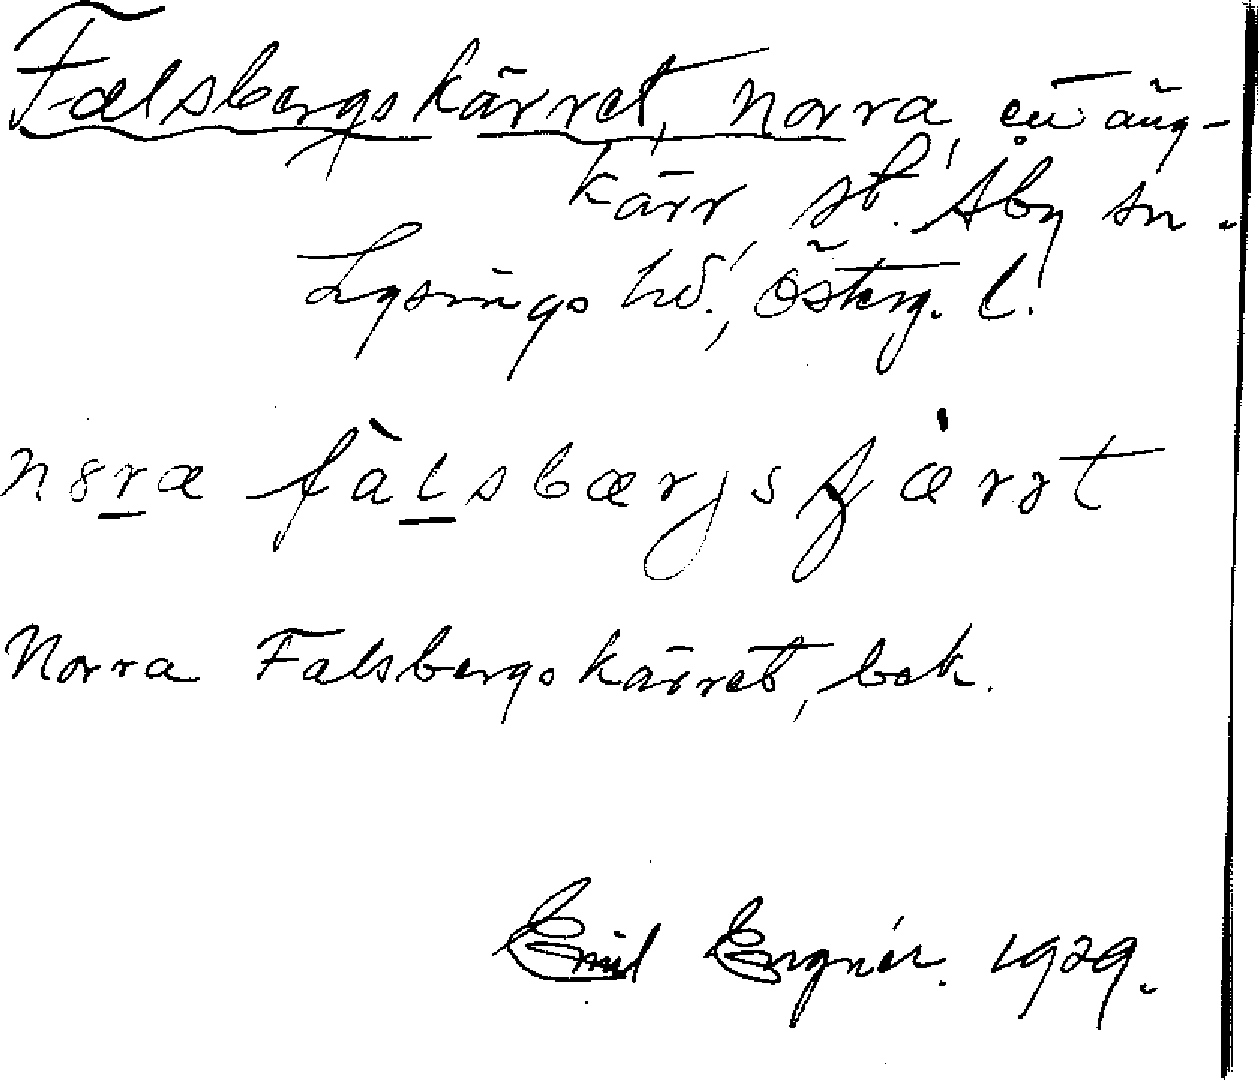 Falsbergskärret, norra, en äng-
kärr, st. Åby sn.
Lysings hd., Österg. l.
nɔra fàlsbærjsçærət
Norra Falsbergskärret, bek.
Emil Engnér. 1929.